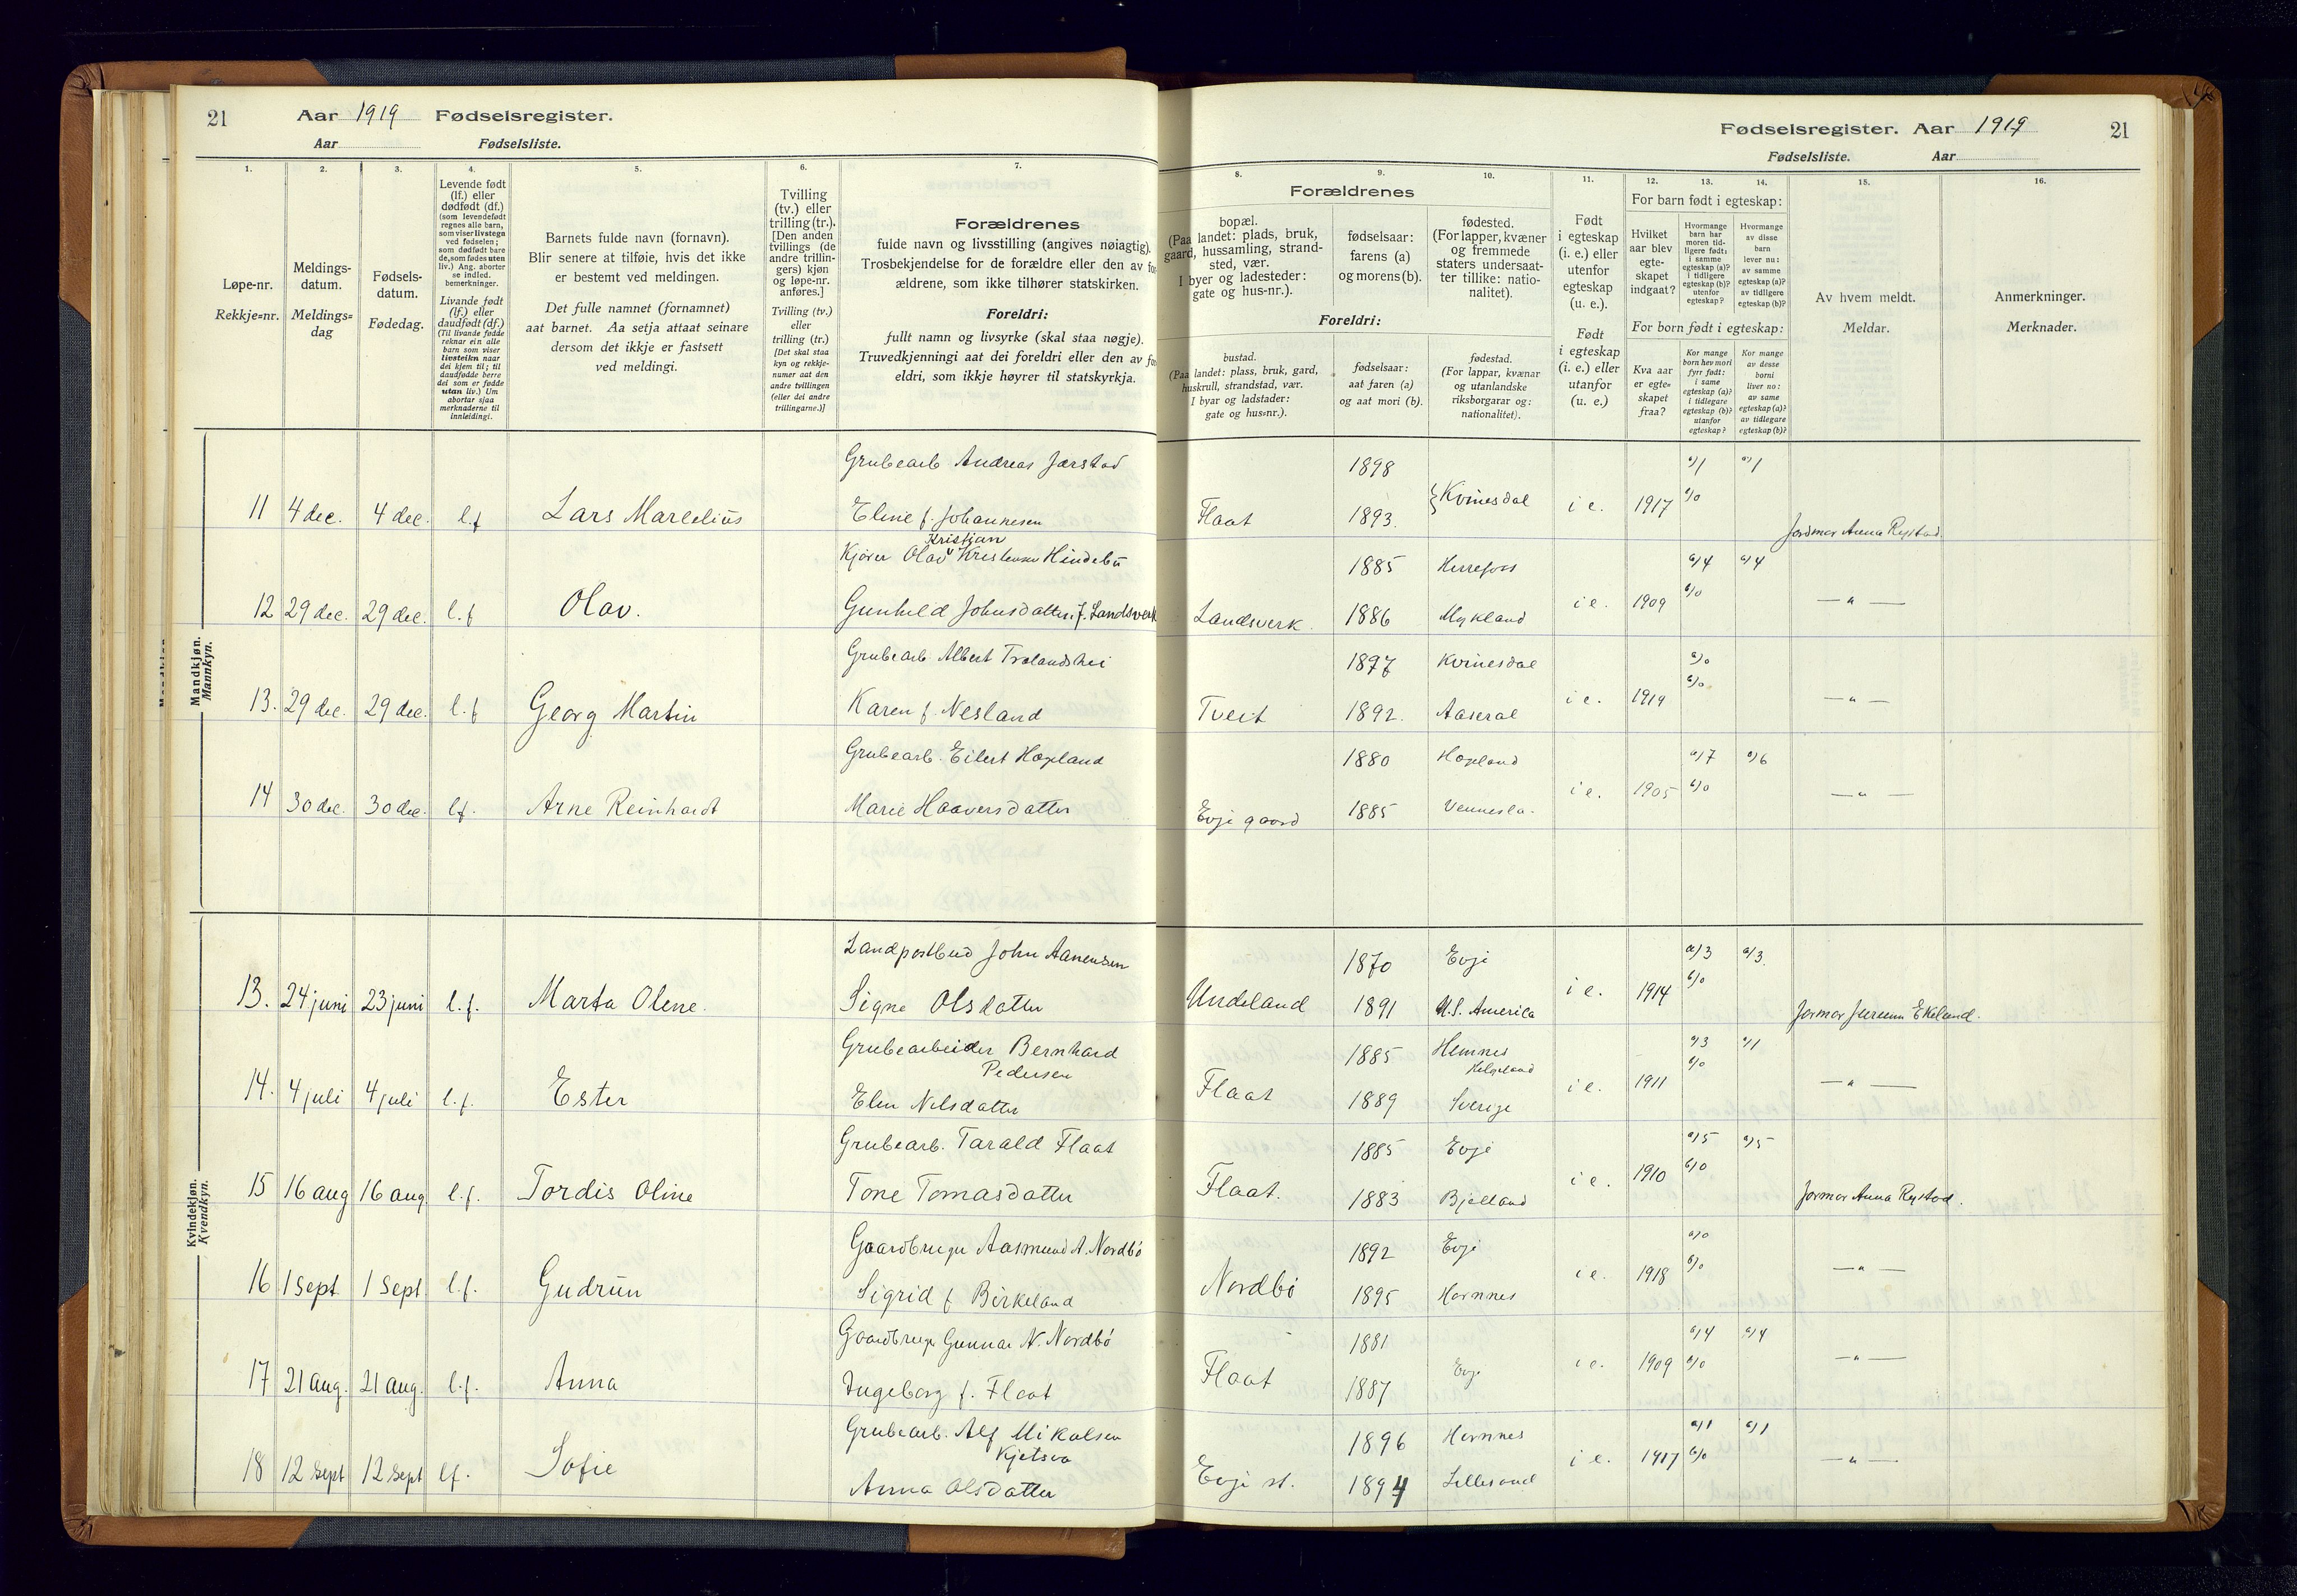 21
Aar 1919 Fødselsregister.
Aar Fødselsliste.
1.
2.
3.
4.
5.
6.
7.
Løpe-nr.
Rekkje=nr.
Meldings-
datum.
Meldings=
dag
Fødsels-
datum.
Fødedag.
Levende født
(lf.) eller
dødfødt (df.)
(som levendefødt
regnes alle barn,
som viser livstegn
ved fødselen;
som dødfødt bare
de, som fødes uten
liv.) Ang. aborter
se indled.
bemerkninger.
Livande født
(lf.) eller
daudfødt (df.)
(Til livande fødde
reknar ein alle
barn som viser
livsteikn naar
dei kjem til; til
daudfødde berre
dei som er fødde
utan liv.) Um
abortar sjaa
merknaderne til
innleidingi.
Barnets fulde navn (fornavn).
Blir senere at tilføie, hvis det ikke
er bestemt ved meldingen.
Det fulle namnet (fornamnet)
aat barnet. Aa setja attaat seinare
dersom det ikkje er fastsett
ved meldingi.
Tvilling
(tv.) eller
trilling (tr.).
[Den anden
tvillings (de
andre trillin-
gers) kjøn
og løpe-nr.
anføres.]
Tvilling (tv.)
eller
trilling (tr.)
[Det skal staa
kyn og rekkje-
numer aat den
andre tvillingen
(eller dei andre
trillingarne.)]
Forældrenes
fulde navn og livsstilling (angives nøiagtig).
Trosbekjendelse for de forældre eller den av
ældrene, som ikke tilhører statskirken.
Foreldri:
fullt namn og livsyrke (skal staa nøgje).
Truvedkjenningi aat dei foreldri eller den av
eldri, som ikkje høyrer til statskyrkja.
Mandkjøn.
Mannkyn.
Grubearb Andreas Jærstad
11 4 dec. 4 dec. l.f Lars Marcelius Eline f. Johannesen
Kristjan
Kjører Olav Kristensen Hindebu
12 29 dec. 29 dec. l.f Olav. Gunhild Johnsdatter f. Landsverk
Grubearb Albert Trælandshei
13. 29 dec. 29 dec. l.f Georg Martin Karen f. Nesland
Grubearb. Eilert Hægeland
14 30 dec. 30 dec. lf. Arne Reinhardt Marie Haaversdatter
Kvindekjøn.
Kvendkyn.
Landpostbud John Aanensen
13. 24 juni 23 juni l.f. Marta Olene. Signe Olsdatter
Grubearbeider Bernhard
Pedersen
14. 4 juli 4 juli l.f. Ester Elen Nilsdatter
Grubearb. Tarald Flaat
15 16 aug 16 aug l.f. Tordis Oline Tone Tomasdatter
Gaardbruger Aasmund A. Nordbø
16 1 Sept 1 Sept l.f. Gudrun Sigrid f Birkeland
Gaardbruger Gunnar N. Nordbø
17 21 aug. 21 aug. l.f. Anna Ingeborg f. Flaat
Grubearb. Alf Mikalsen
Kjetsaa
18 12 Sept 12 Sept lf. Sofie Anna Olsdatter
Fødselsregister. Aar 1919
21
Fødselsliste. Aar
8.
9.
10.
11.
12.
13.
14.
15.
16.
Forældrenes
bopæl.
(Paa landet: plads, bruk,
gaard, hussamling, strand-
sted, vær.
I byer og ladesteder:
gate og hus-nr.).
fødselsaar:
farens (a)
og morens (b).
fødested.
(For lapper, kvæner
og fremmede
staters undersaat-
ter tillike: natio-
nalitet).
Foreldri:
bustad.
(Paa landet: plass, bruk, gard,
huskrull, strandstad, vær.
I byar og ladstader:
gate og hus=nr.).
fødselsaar:
aat faren (a)
og aat mori (b).
fødestad.
(For lappar, kvænar
og utanlandske
riksborgarar og:
nationalitet).
Født
i egteskap
(i. e.) eller
utenfor
egteskap
(u. e.).
Født
i egteskap
(i. e.) eller
utanfor
(u. e.)
For barn født i egteskap:
Hvilket
aar blev
egte-
skapet
indgaat?
Hvormange
barn har
moren tid-
ligere født:
i samme
egteskap (a)?
i tidligere
egteskap (b)?
utenfor
egteskap?
Hvormange
av disse
barn
lever nu:
av samme
egteskap (a)?
av tidligere
egteskap (b)?
For born født i egteskap:
Kva aar
er egte=
skapet
fraa?
Kor mange
born hev mori
fyrr født:
i same
egteskap (a)?
i tidlegare
egteskap (b)?
utanfor
egteskap?
Kor mange
av desse
borni
liver no:
av same
egteskap (a)?
av tidlegare
egteskap (b)?
Av hvem meldt.
Meldar.
Anmerkninger.
Merknader.
1898 a/1 a/1
Flaat 1893. Kvinesdal i e. 1917 b/0
Jordmor Anna Rystad.
1885 Herrefoss a/4 a/4
Landsverk. 1886 Mykland i e. 1909 b/0 — " —
1897 Kvinesdal a/0
Tveit 1892. Aaseral i e. 1919 b/0 — " —
1880 Hægeland a/7 a/6
Evje gaard 1885 Vennesla. i e. 1905 b/0 — " —
1870 Evje a/3 a/3.
Undeland 1891 U.S. America i e. 1914 b/0
Jormor Jursenn Ekeland.
1885 Hemnes a/3 a/1
Helgeland
Flaat 1889 Sverige i e. 1911 b/0 — " —
1885 Evje a/5 a/5
Flaat. 1883 Bjelland i e. 1910 b/0
Jormor Anna Rystad.
1892 Evje a/0
Nordbø 1895 Hornnes i e. 1918 b/0 — " —
1881 a/4 a/4
Flaat 1887 Evje i e. 1909 b/0 — " —
1896 Hornnes a/1 a/1
Evje st. 1894 Lillesand i e. 1917 b/0 — " —